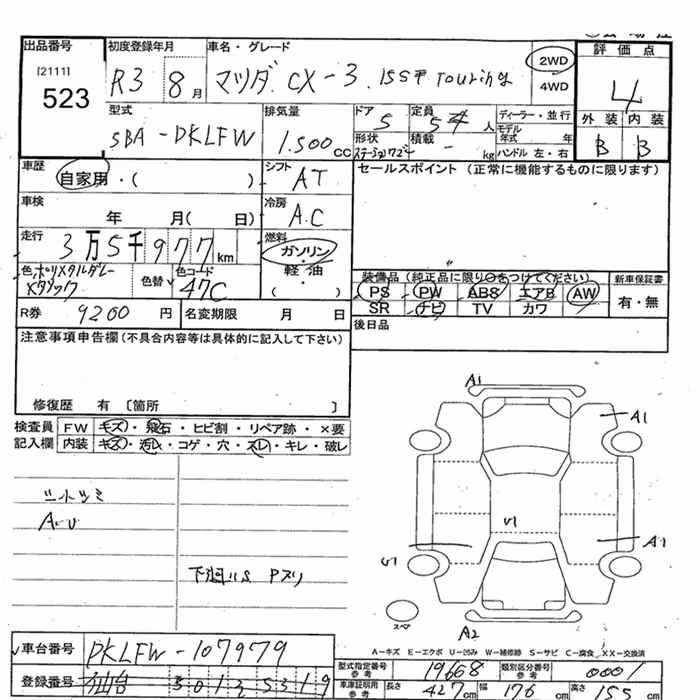 出品番号
[2111]
523
初度登録年月
R3 8月
車名・グレード
マツダ CX-3 15S Touring
2WD
4WD
評価点
4
外装 内装
B B
型式
5BA-DKLFW
排気量
1.500 CC
ドア
5
定員
5人
形状
積載
- kg
ディーラー・並行
モデル年式 年
ハンドル 左・右
車歴
自家用・( )
シフト
AT
セールスポイント (正常に機能するものに限ります)
車検
年 月( 日)
冷房
A.C
走行
3万5千977km
燃料
ガソリン
軽・油
( ・ )
色 ポリメタルグレー
メタリック
色替
色コード
47C
装備品 (純正品に限り○をつけてください)
PS PW ABS エアB AW
SR ナビ TV カワ
新車保証書
有・無
R券 9200円
名変期限 月 日
後日品
注意事項申告欄(不具合内容等は具体的に記入して下さい)
修復歴 有 〔箇所 〕
検査員
記入欄
FW キズ・飛石・ヒビ割・リペア跡・×要
内装 キズ・汚れ・コゲ・穴・スレ・キレ・破レ
A-U
下廻りS Pズリ
A1
A1
U1
U1
A1
A2
スペア
A-キズ E-エクボ U-凹み W-補修跡 S-サビ C-腐食 XX-交換済
車台番号
DKLFW-107979
登録番号
仙台 301 5319
型式指定番号
参考
19668
類別区分番号
参考
0001
車庫証明用
参考
長さ 427cm
幅 176cm
高さ 155cm